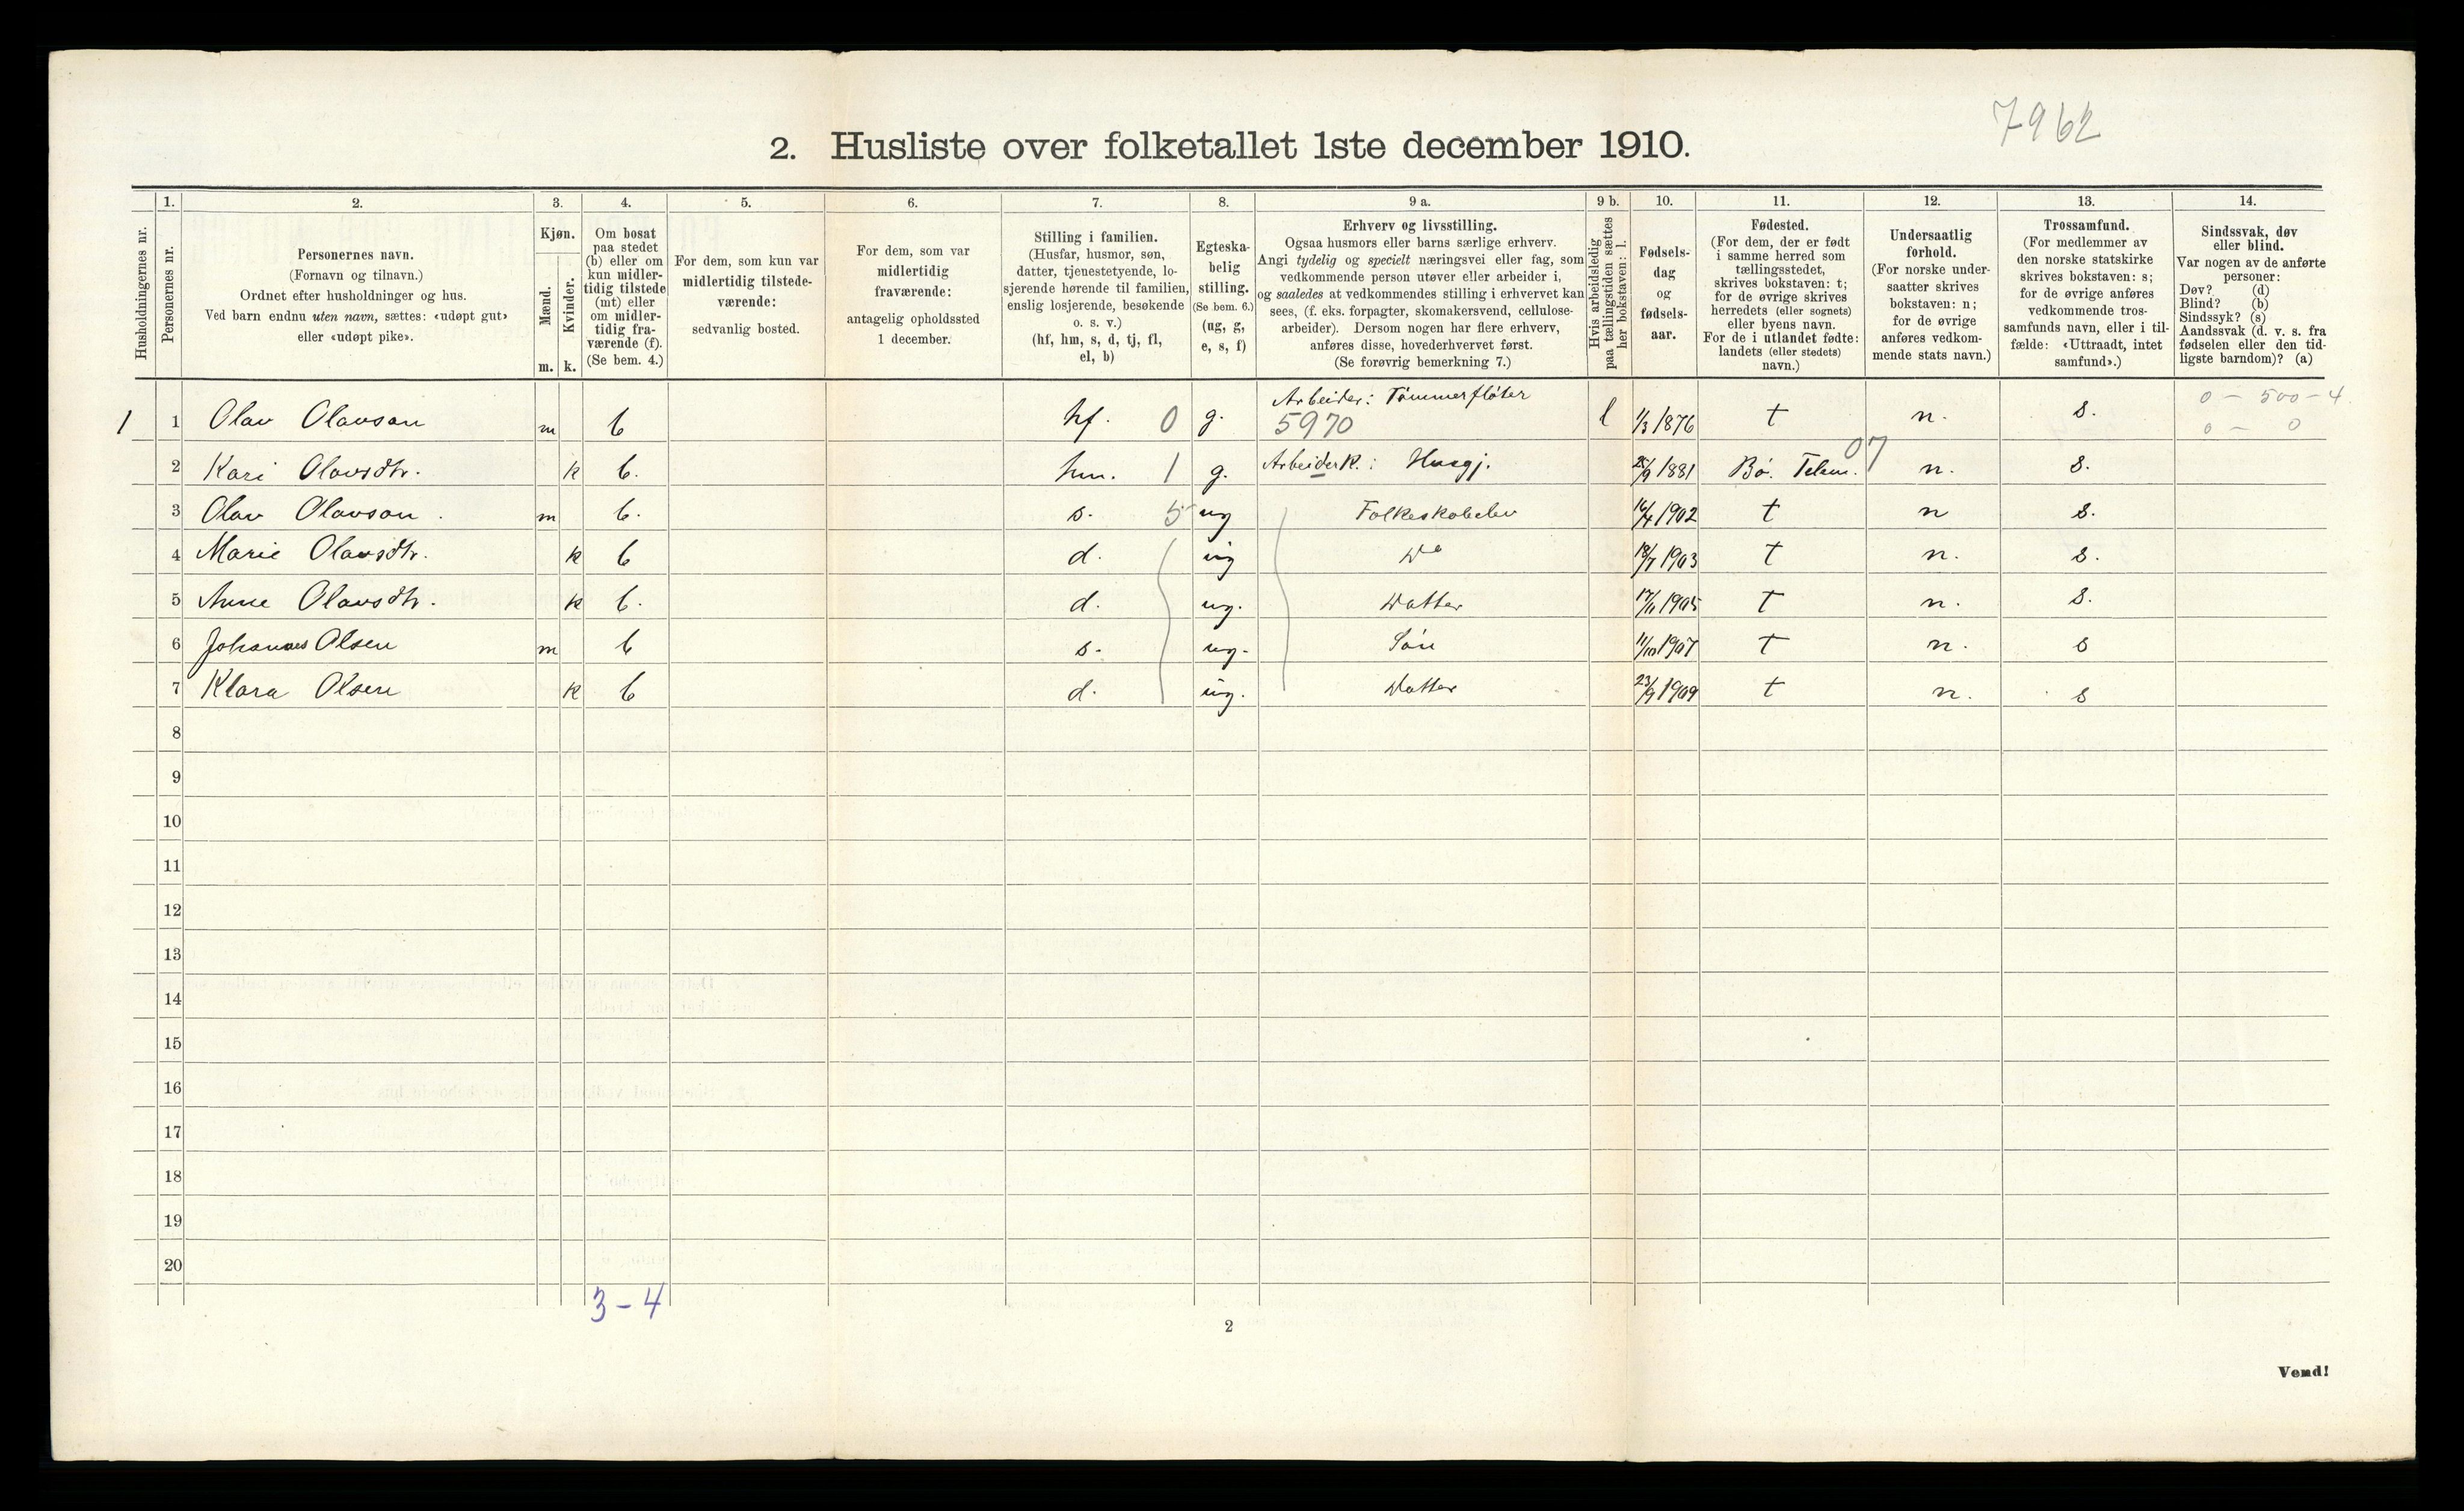 7962
2. Husliste over folketallet 1ste december 1910.
Husholdningernes nr.
1.
Personernes nr.
2.
Personernes navn.
(Fornavn og tilnavn.)
Ordnet efter husholdninger og hus.
Ved barn endnu uten navn, sættes: «udøpt gut»
eller «udøpt pike».
3.
Kjøn.
Mænd.
Kvinder.
m. k.
4.
Om bosat
paa stedet
(b) eller om
kun midler-
tidig tilstede
(mt) eller
om midler-
tidig fra-
værende (f).
(Se bem. 4.)
5.
For dem, som kun var
midlertidig tilstede-
værende:
sedvanlig bosted.
6.
For dem, som var
midlertidig
fraværende:
antagelig opholdssted
1 december.
7.
Stilling i familien.
(Husfar, husmor, søn,
datter, tjenestetyende, lo-
sjerende hørende til familien,
enslig losjerende, besøkende
o. s. v.)
(hf, hm, s, d, tj, fl,
el, b)
8.
Egteska-
belig
stilling.
(Se bem. 6.)
(ug, g,
e, s, f)
9 a.
Erhverv og livsstilling.
Ogsaa husmors eller barns særlige erhverv.
Angi tydelig og specielt næringsvei eller fag, som
vedkommende person utøver eller arbeider i,
og saaledes at vedkommendes stilling i erhvervet kan
sees, (f. eks. forpagter, skomakersvend, cellulose-
arbeider). Dersom nogen har flere erhverv,
anføres disse, hovederhvervet først.
(Se forøvrig bemerkning 7.)
9 b.
Hvis arbeidsledig
paa tællingstiden sættes
her bokstaven: l.
10.
Fødsels-
dag
og
fødsels-
aar.
11.
Fødested.
(For dem, der er født
i samme herred som
tællingsstedet,
skrives bokstaven: t;
for de øvrige skrives
herredets (eller sognets)
eller byens navn.
For de i utlandet fødte:
landets (eller stedets)
navn.)
12.
Undersaatlig
forhold.
(For norske under-
saatter skrives
bokstaven: n;
for de øvrige
anføres vedkom-
mende stats navn.)
13.
Trossamfund.
(For medlemmer av
den norske statskirke
skrives bokstaven: s;
for de øvrige anføres
vedkommende tros-
samfunds navn, eller i til-
fælde: «Uttraadt, intet
samfund».)
14.
Sindssvak, døv
eller blind.
Var nogen av de anførte
personer:
Døv? (d)
Blind? (b)
Sindssyk? (s)
Aandssvak (d. v. s. fra
fødselen eller den tid-
ligste barndom)? (a)
1 1 Olav Olavson m b hf. 0 g. Arbeider: Tømmerfløter 5970 l 1/3 1876 t n. s. 0 - 500 - 4 0 - 0
2 Kari Olavsdtr. k b. hm. 1 g. Arbeiderk.: Husgj. 25/9 1881 Bø. Telem. 07 n. s.
3 Olav Olavson. m b. s. 5 ug Folkeskoleelev 16/4 1902 t n s.
4 Marie Olavsdtr. k b d. ug Do 18/7 1903 t n. s.
5 Anne Olavsdtr. k b. d. ug. Datter 17/11 1905 t n. s.
6 Johannes Olsen m b s. ug. Søn 11/10 1907 t n. s
7 Klara Olsen k b d. ug. Datter 23/9 1909 t n. s
8
9
10
11
12
13
14
15
16
17
18
19
20
3-4
2
Vend!